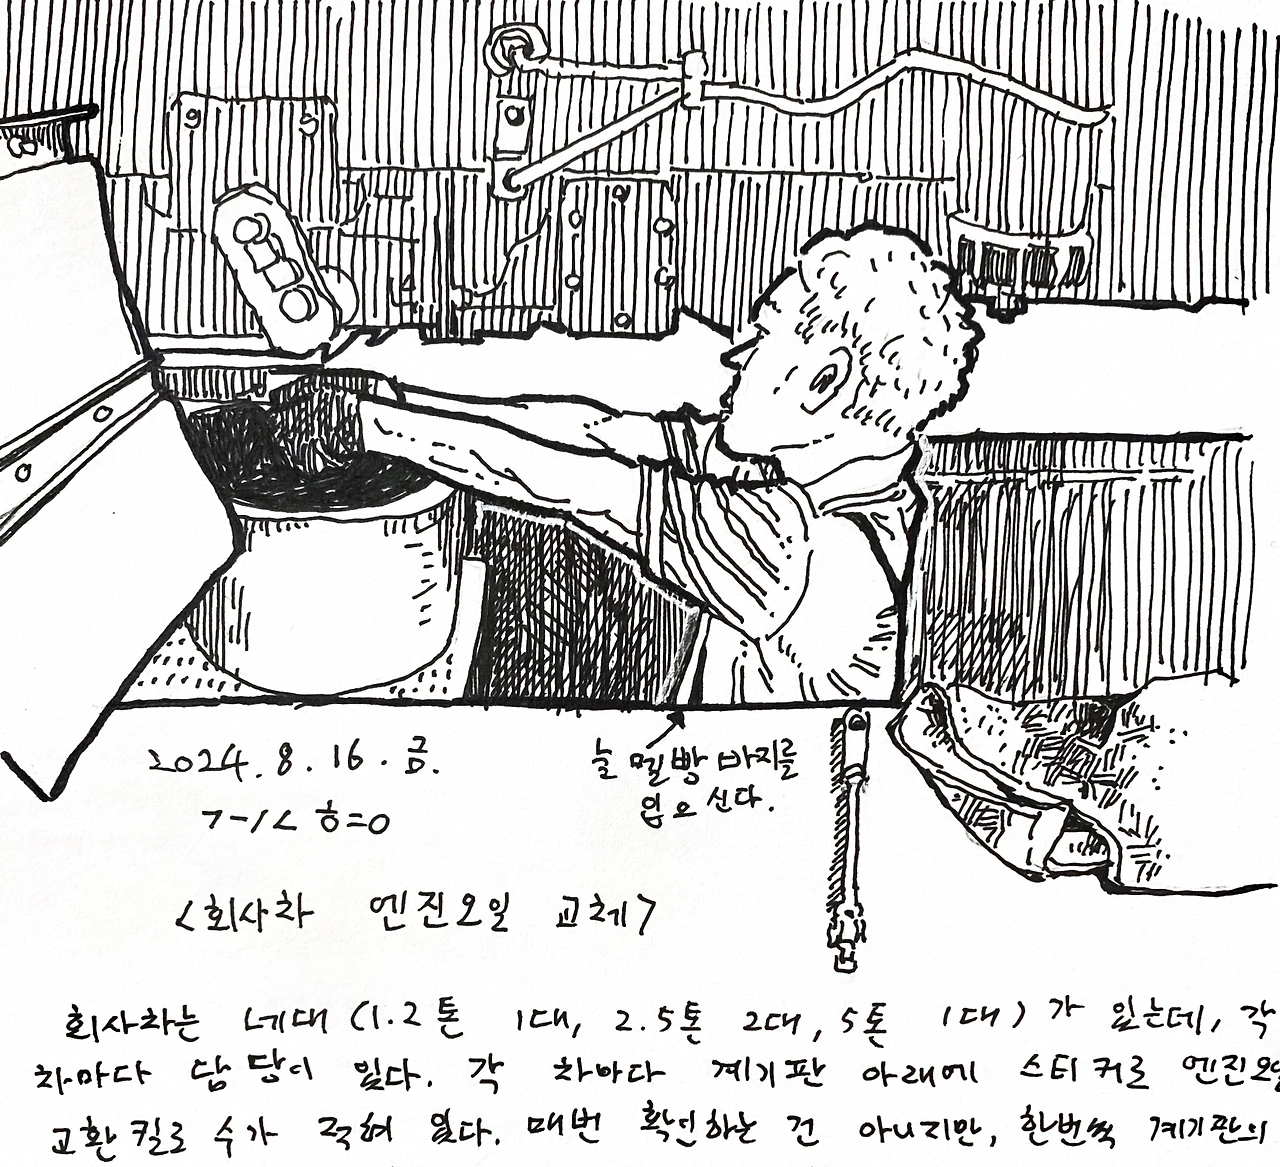 2024. 8. 16. 금.
늘 멜빵 바지를
입으신다.
<회사차 엔진오일 교체>
회사차는 네대 (1.2톤 1대, 2.5톤 2대, 5톤 1대) 가 있는데, 각
차마다 담당이 있다. 각 차마다 계기판 아래에 스티커로 엔진오일
교환 킬로 수가 적혀 있다. 매번 확인하는 건 아니지만, 한번씩 계기판의